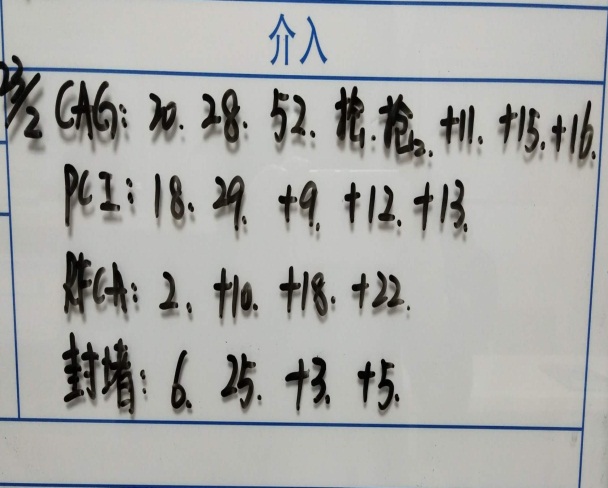 介入
23/2 CAG: 20. 28. 52. 抢1. 抢12. +11. +15. +16.
PCI: 18. 29. +9. +12. +13.
RFCA: 2. +10. +18. +22.
封堵: 6. 25. +3. +5.